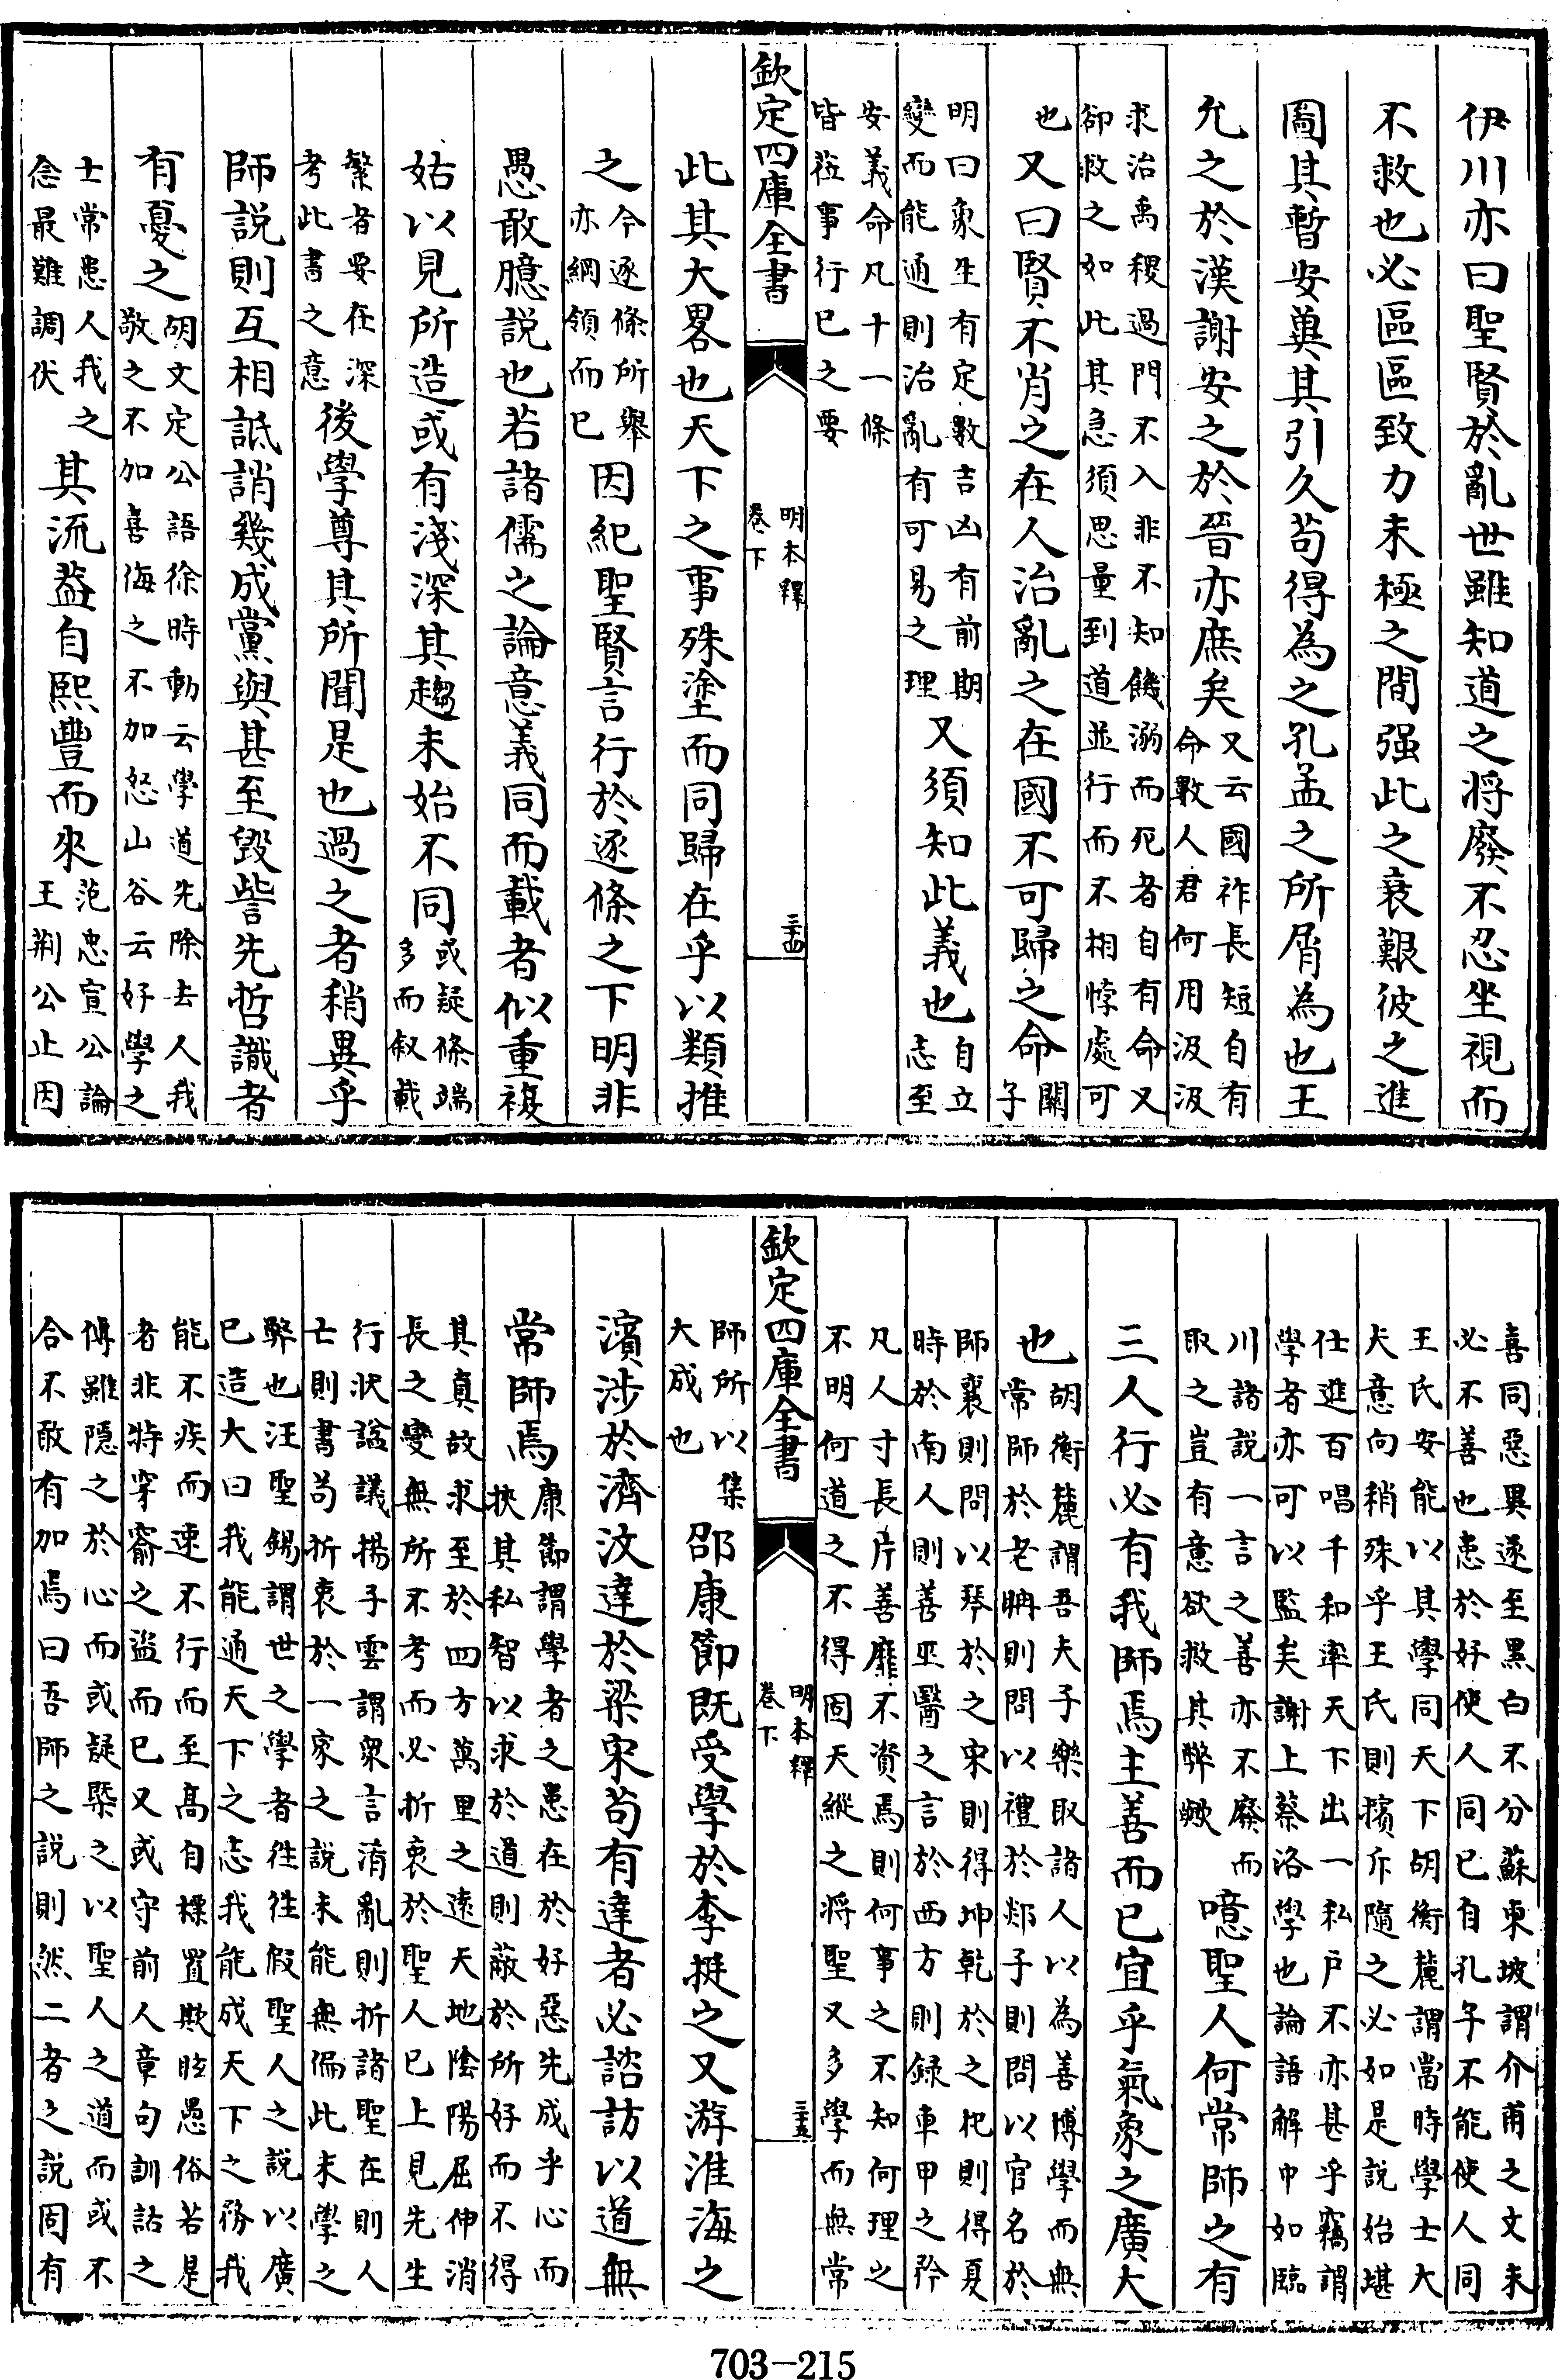 伊川亦曰聖賢於亂世雖知道之将廢不忍坐視而
不救也必區區致力未極之間强此之衰艱彼之進
圖其暫安冀其引久苟得為之孔孟之所屑為也王
允之於漢謝安之於晉亦庶矣又云國祚長短自有命數人君何用汲汲
求治禹稷過門不入非不知饑溺而死者自有命又卻救之如此其急須思量到道並行而不相悖處可
也又曰賢不肖之在人治亂之在國不可歸之命關子
明曰象生有定數吉凶有前期變而能通則治亂有可易之理又須知此義也自立志至
安義命凡十一條皆蒞事行已之要
欽定四庫全書
明本釋
卷下
三十四
此其大畧也天下之事殊塗而同歸在乎以類推
之今逐條所舉亦綱領而已因紀聖賢言行於逐條之下明非
愚敢臆説也若諸儒之論意義同而載者似重複
姑以見所造或有淺深其趨未始不同或疑條端多而叙載
繁者要在深考此書之意後學尊其所聞是也過之者稍異乎
師説則互相詆誚幾成黨與甚至毀訾先哲識者
有憂之胡文定公語徐時動云學道先除去人我敬之不加喜侮之不加怒山谷云好學之
士常患人我之念最難調伏其流葢自熙豐而來范忠宣公論王荆公止因
喜同惡異遂至黒白不分蘇東坡謂介甫之文未必不善也患於好使人同已自孔子不能使人同
王氏安能以其學同天下胡衡麓謂當時學士大夫意向稍殊乎王氏則擯斥隨之必如是説始堪
仕進百唱千和率天下出一私户不亦甚乎竊謂學者亦可以監矣謝上蔡洛學也論語解中如臨
川諸説一言之善亦不廢而取之豈有意欲救其弊歟噫聖人何常師之有
三人行必有我師焉主善而已宜乎氣象之廣大
也胡衡麓謂吾夫子樂取諸人以為善博學而無常師於老聃則問以禮於郯子則問以官名於
師襄則問以琴於之宋則得坤乾於之杞則得夏時於南人則善巫醫之言於西方則録車甲之矜
凡人寸長片善靡不資焉則何事之不知何理之不明何道之不得固天縱之将聖又多學而無常
欽定四庫全書
明本釋
卷下
三十五
師所以集大成也邵康節既受學於李挺之又游淮海之
濱涉於濟汶達於梁宋苟有達者必諮訪以道無
常師焉康節謂學者之患在於好惡先成乎心而挾其私智以求於道則蔽於所好而不得
其真故求至於四方萬里之遠天地陰陽屈伸消長之變無所不考而必折衷於聖人已上見先生
行状謚議揚子雲謂衆言淆亂則折諸聖在則人亡則書苟折衷於一家之説未能無偏此末學之
弊也汪聖錫謂世之學者徃徃假聖人之説以廣已造大曰我能通天下之志我能成天下之務我
能不疾而速不行而至髙自標置欺眩愚俗若是者非特穿窬之盜而已又或守前人章句訓詁之
傅雖隠之於心而或疑槩之以聖人之道而或不合不敢有加焉曰吾師之説則然二者之説固有
703-215